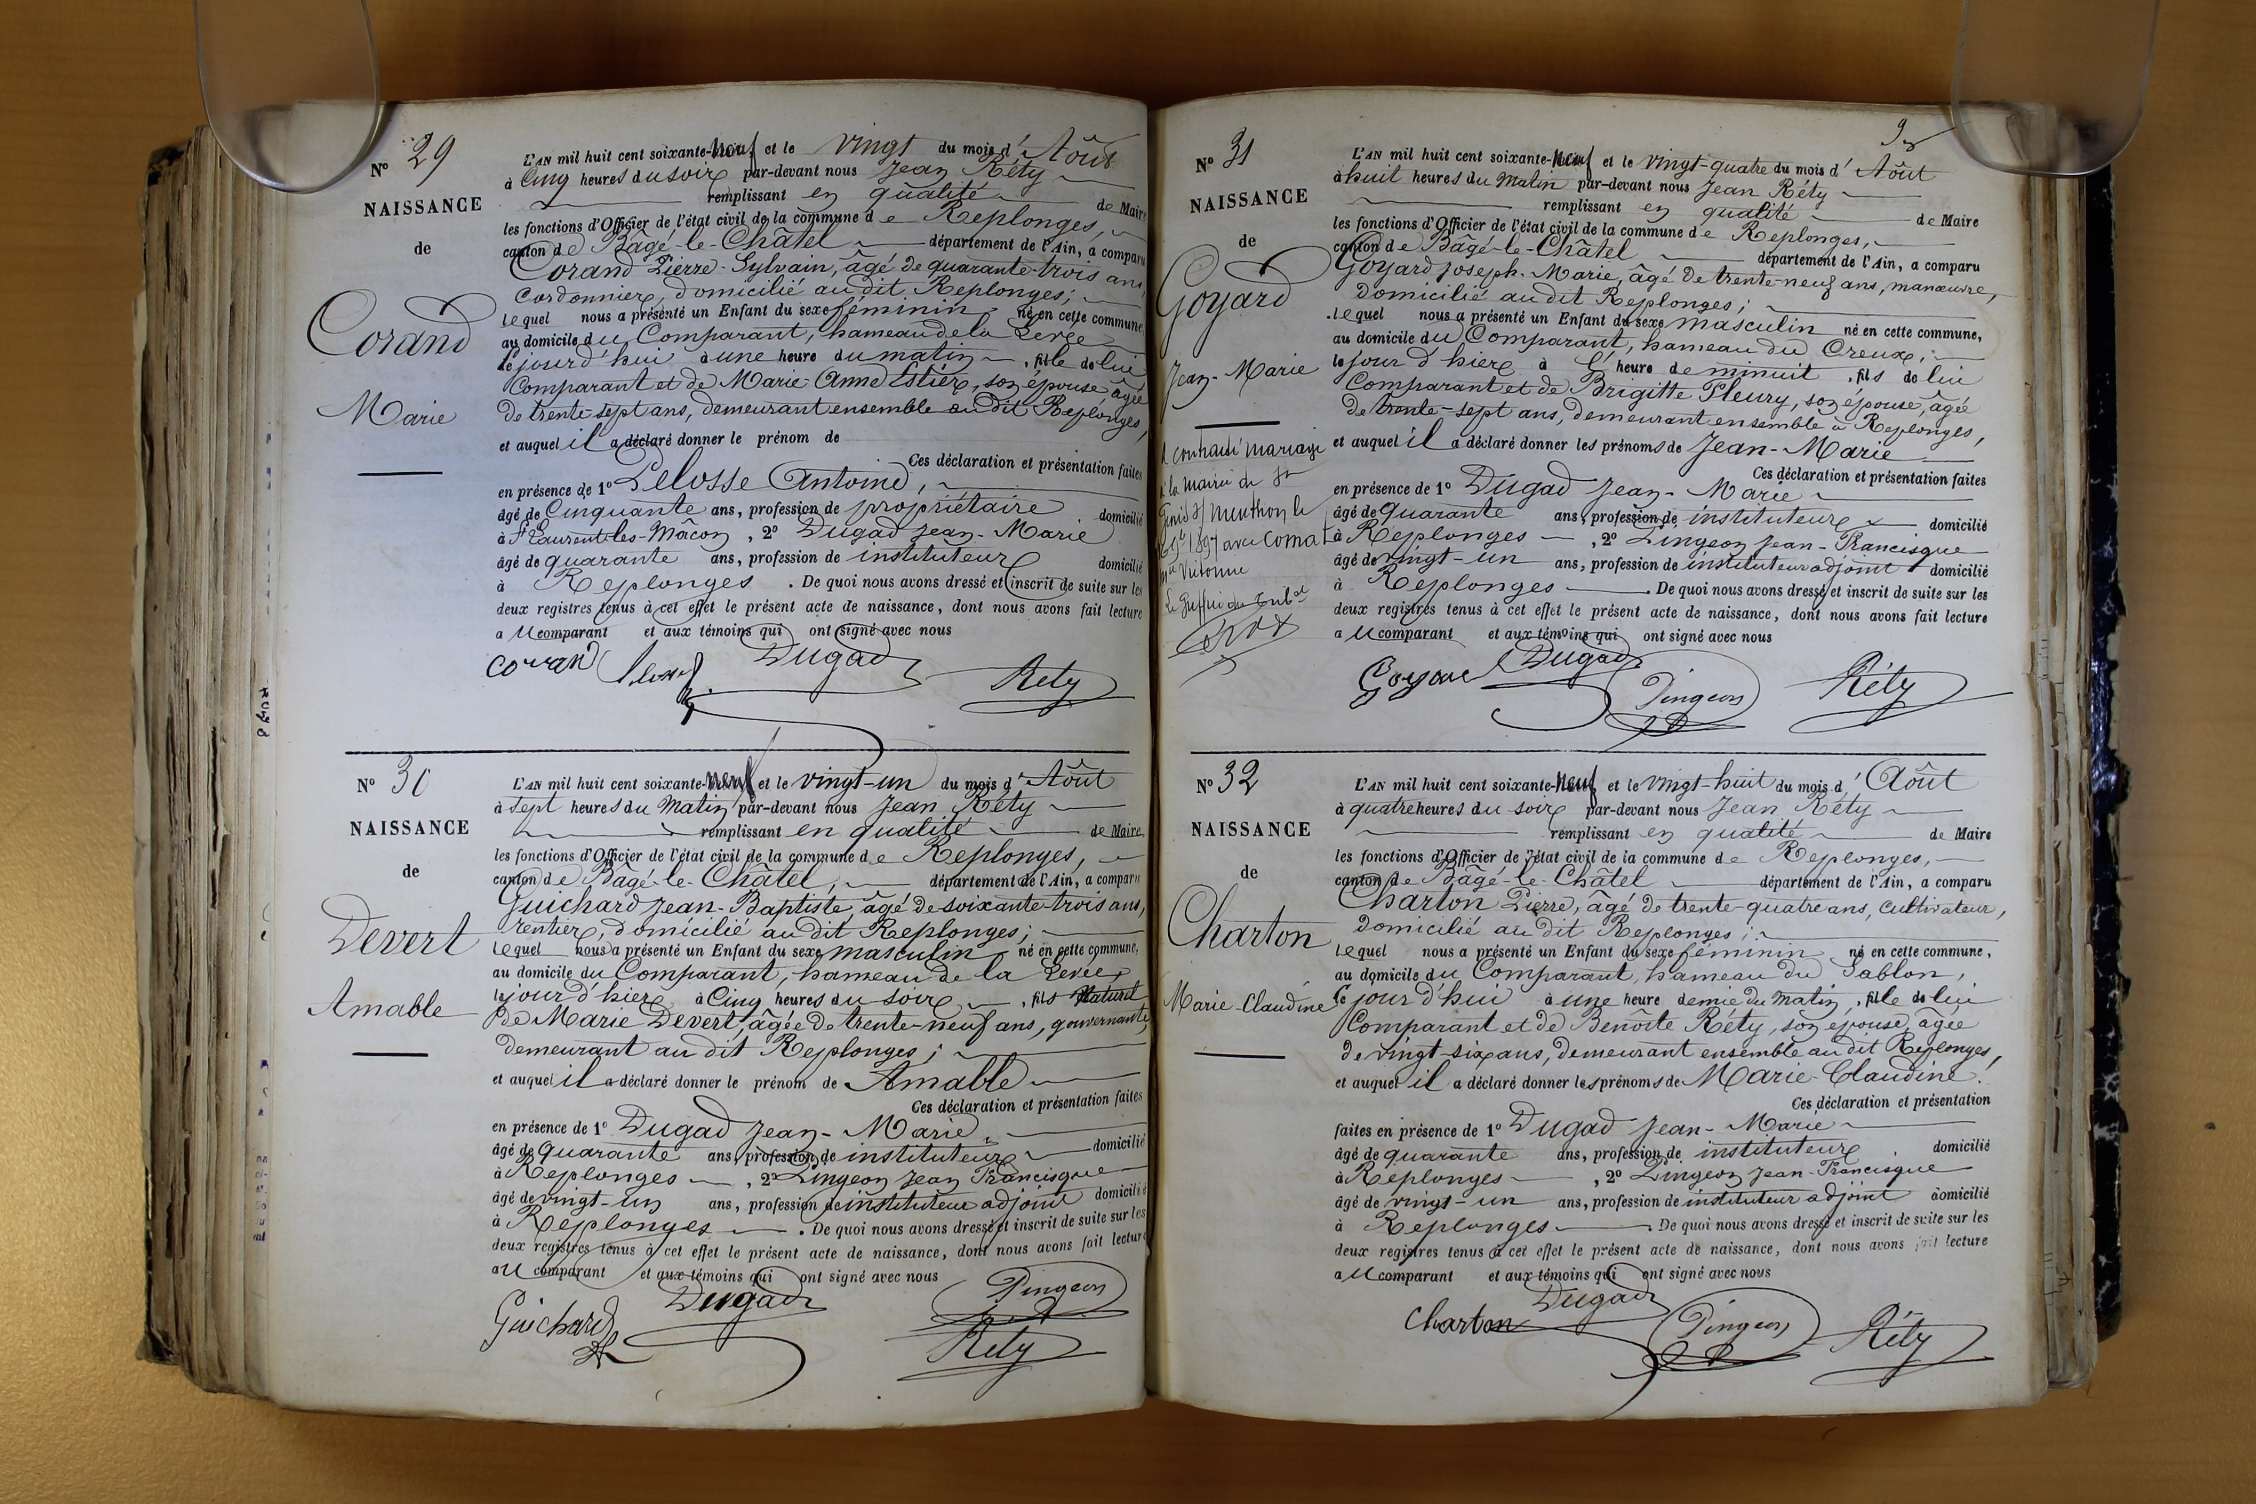 N° 29
NAISSANCE
de
Corand
Marie
L'AN mil huit cent soixante-neuf et le vingt du mois d'Aôut
à Cinq heures du soir par-devant nous Jean Réty
remplissant en qualité de Maire
les fonctions d'Officier de l'état civil de la commune de Replonges,
canton de Bâgé-le-Châtel département de l'Ain, a comparu
Corand Pierre-Sylvain, âgé de quarante-trois ans,
Cordonnier, domicilié au dit Replonges;
lequel nous a présenté un Enfant du sexe féminin né en cette commune,
au domicile du Comparant, hameau de la
le jour d'hui à une heure du matin, fille de lui
Comparant et de Marie-Anne Estier, son épouse âgée
de trente-sept ans, demeurant ensemble au dit Replonges,
et auquel il a déclaré donner le prénom de
Ces déclaration et présentation faites
en présence de 1° Pelosse Antoine,
âgé de Cinquante ans, profession de propriétaire domicilié
à St Laurent-les-Mâcon, 2° Dugad Jean-Marie
âgé de quarante ans, profession de instituteur domicilié
à Replonges. De quoi nous avons dressé et inscrit de suite sur les
deux registres tenus à cet effet le présent acte de naissance, dont nous avons fait lecture
au comparant et aux témoins qui ont signé avec nous
Corand Pelosse Dugad Réty
N° 30
NAISSANCE
de
Devert
Amable
L'AN mil huit cent soixante-neuf et le vingt-un du mois d'Aôut
à sept heures du matin par-devant nous Jean Réty
remplissant en qualité de Maire
les fonctions d'Officier de l'état civil de la commune de Replonges,
canton de Bâgé-le-Châtel, département de l'Ain, a comparu
Guichard Jean-Baptiste, âgé de soixante-trois ans,
rentier, domicilié au dit Replonges;
lequel nous a présenté un Enfant du sexe masculin né en cette commune,
au domicile du Comparant, hameau de la Levée,
le jour d'hier à Cinq heures du soir, fils Naturel
de Marie Devert, âgée de trente-neuf ans, gouvernante,
demeurant au dit Replonges;
et auquel il a déclaré donner le prénom de Amable
Ces déclaration et présentation faites
en présence de 1° Dugad Jean-Marie,
âgé de quarante ans, profession de instituteur domicilié
à Replonges, 2° Pingeon Jean Francisque
âgé de vingt-un ans, profession de instituteur adjoint domicilié
à Replonges. De quoi nous avons dressé et inscrit de suite sur les
deux registres tenus à cet effet le présent acte de naissance, dont nous avons fait lecture
au comparant et aux témoins qui ont signé avec nous
Guichard Dugad Pingeon
Réty
N° 31
NAISSANCE
de
Goyard
Jean-Marie
a contracté mariage
à la mairie de St
Genis s/ Menthon le
1897 avec Comat
Victorine
Le greffier du Tribal
L'AN mil huit cent soixante-neuf et le vingt-quatre du mois d'Aôut
à huit heures du matin par-devant nous Jean Réty
remplissant en qualité de Maire
les fonctions d'Officier de l'état civil de la commune de Replonges,
canton de Bâgé-le-Châtel département de l'Ain, a comparu
Goyard Joseph-Marie, âgé de trente-neuf ans, manœuvre,
domicilié au dit Replonges;
lequel nous a présenté un Enfant du sexe masculin né en cette commune,
au domicile du Comparant, hameau du Creux,
le jour d'hier à l'heure de minuit, fils de lui
Comparant et de Brigitte Fleury, son épouse, âgée
de trente-sept ans, demeurant ensemble à Replonges,
et auquel il a déclaré donner les prénoms de Jean-Marie
Ces déclaration et présentation faites
en présence de 1° Dugad Jean-Marie
âgé de quarante ans, profession de instituteur domicilié
à Replonges, 2° Pingeon Jean-Francisque
âgé de vingt-un ans, profession de instituteur adjoint domicilié
à Replonges. De quoi nous avons dressé et inscrit de suite sur les
deux registres tenus à cet effet le présent acte de naissance, dont nous avons fait lecture
au comparant et aux témoins qui ont signé avec nous
Goyard Dugad Pingeon Réty
N° 32
NAISSANCE
de
Charton
Marie-Claudine
L'AN mil huit cent soixante-neuf et le vingt-huit du mois d'Aôut
à quatre heures du soir par-devant nous Jean Réty
remplissant en qualité de Maire
les fonctions d'Officier de l'état civil de la commune de Replonges,
canton de Bâgé-le-Châtel département de l'Ain, a comparu
Charton Pierre, âgé de trente-quatre ans, cultivateur,
domicilié au dit Replonges;
lequel nous a présenté un Enfant du sexe féminin né en cette commune,
au domicile du Comparant, hameau du Sablon,
le jour d'hui à une heure demie du matin, fille de lui
Comparant et de Benoîte Réty, son épouse, âgée
de vingt-six ans, demeurant ensemble au dit Replonges,
et auquel il a déclaré donner les prénoms de Marie-Claudine.
Ces déclaration et présentation
faites en présence de 1° Dugad Jean-Marie
âgé de quarante ans, profession de instituteur domicilié
à Replonges, 2° Pingeon Jean-Francisque
âgé de vingt-un ans, profession de instituteur adjoint domicilié
à Replonges. De quoi nous avons dressé et inscrit de suite sur les
deux registres tenus à cet effet le présent acte de naissance, dont nous avons fait lecture
au comparant et aux témoins qui ont signé avec nous
Charton Dugad Pingeon Réty